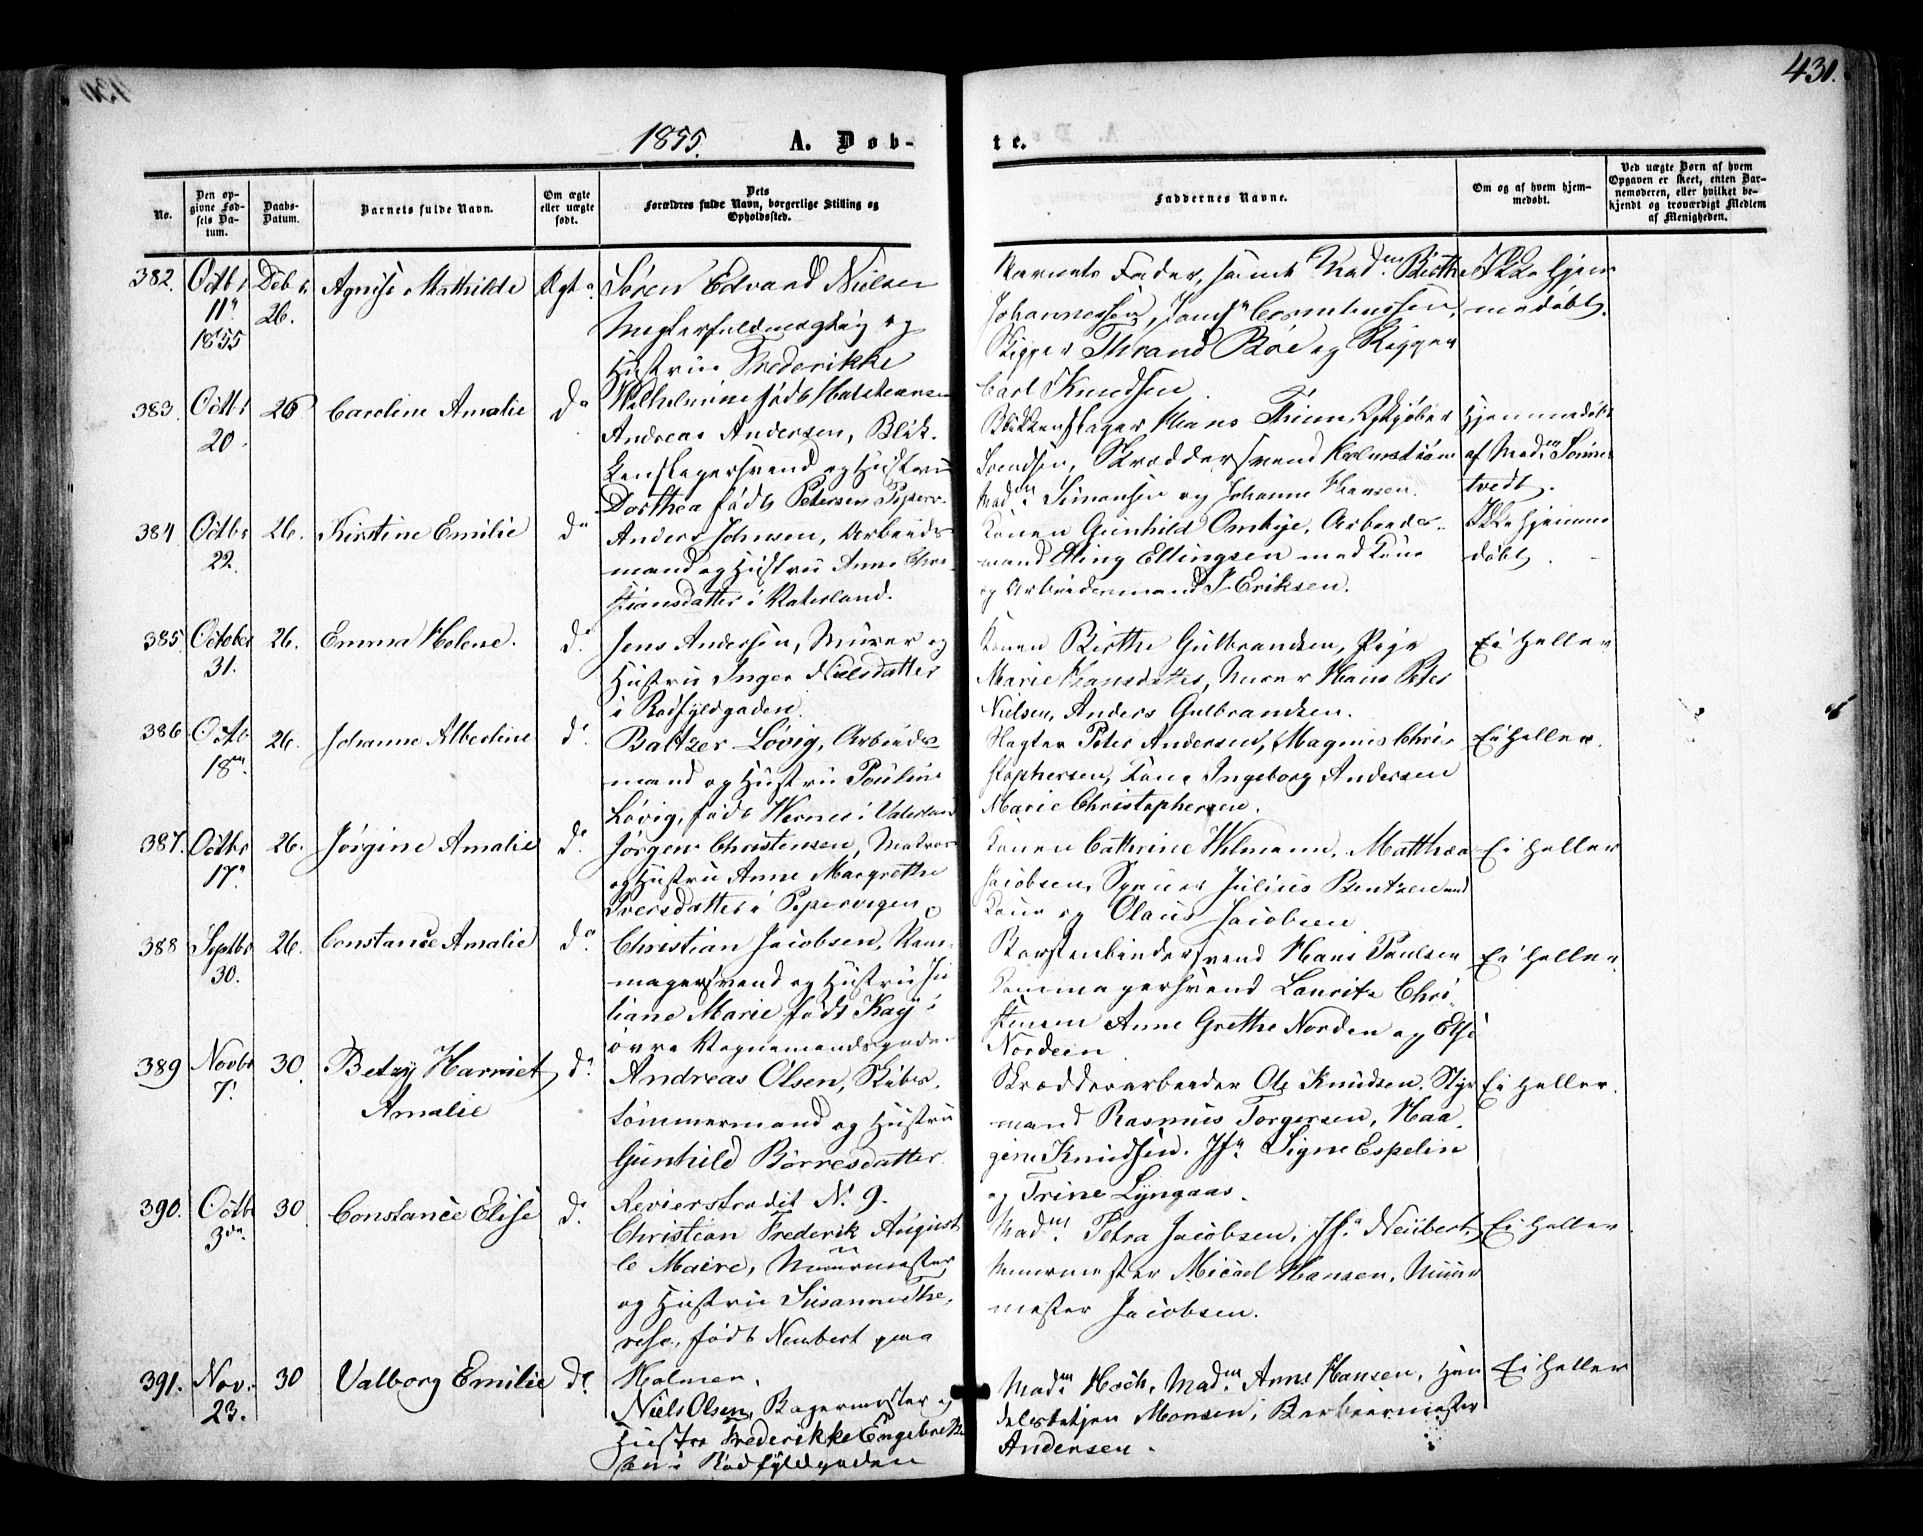 431.
1855. A. Døb-
te.
No.
Den op-
givne Fød-
sels Da-
tum.
Daabs-
Datum.
Barnets fulde Navn.
Om ægte
eller uægte
født.
Dets
Forældres fulde Navn, borgerlige Stilling og
Opholdssted.
Faddernes Navne.
Om og af hvem hjem-
medøbt.
Ved uægte Børn af hvem
Opgaven er skeet, enten Bar-
nemoderen, eller hvilket be-
kjendt og troværdigt Medlem
af Menigheden.
382.
Octbr
11te
1855
Deb r
26.
Agnise Mathilde
Ægte
Søren Edvard Nielsen
Meglerfuldmægtig og
Hustru Frederikke
Wilhelmine født
Barnets Fader, samt Madm Birthe
Johannessen, Jomfr
Skipper Thrand Böe og Skipper
Carl Knudsen.
Ikke hjem
medøbt.
383.
Octbr
20.
26
Caroline Amalie
do
Andreas Andersen, Blik-
kenslagersvend og Hustru
Dorthea født Petersen Piperv.
Blikkenslager Hans Thium,
Svendsen, Skræddersvend
Madm Simonsen og Johanne Hansen.
Hjemmedøbt
af Madm Sønne
tvedt.
384
Octbr
22.
26.
Kirstine Emilie
do
Anders Johnsen, Arbeids-
mand og Hustru Anne Chri-
stiansdatter i Vaterland.
Konen Gunhild Omtye, Arbeids-
mand Elling Ellingsen med Kone
og Arbeidsmand J. Eriksen.
Ikke hjemme
døbt.
385
October
31.
26.
Emma Helene.
do
Jens Andersen, Murer og
Hustru Inger Nielsdatter
i Rødfyldgaden.
Konen Birthe Gulbrandsen, Pige
Marie Hansdatter, Murer Hans Peter
Nielsen, Anders Gulbrandsen.
Ei heller
386
Octb.
18de
26.
Johanne Albertine
do
Baltzer Løvig, Arbeids-
mand og Hustru Pouline
Løvig, født Werner i Vaterland
Vægter Peter Andersen, Magnus Chri-
stophersen, Kone Ingeborg Andersen
Marie Christophersen.
Ei heller.
387.
Octbr
17de
26.
Jørgine Amalie
do
Jørgen Christensen, Matros
og Hustru Anne Margrethe
Iversdatter i Pipervigen.
Konen Cathrine Wilmann, Matthea
Jacobsen, Julius Bentzen med
Kone og Olaus Jacobsen.
Ei heller
388
Septbr
30.
26.
Constance Amalie
do
Christian Jacobsen, Kam-
magersvend og Hustru Ju
liane Marie født Kay i
øvre Vognmandsgade
Børstenbindersvend Hans Paulsen
Kammagersvend Lauritz Chri-
stensen Anne Grethe Norden og Else
Nordeen.
Ei heller.
389
Novbr
7.
30.
Betzy Harriet
Amalie
do
Andreas Olsen, Skibs-
tømmermand og Hustru
Gunhild Børresdatter
Revierstrædet No 9.
Skrædderarbeider Ole Knudsen. Styr
mand Rasmus Torgersen, Haa-
gine Knudsen. Jfr Signe Espelin
og Trine Lyngaas.
Ei heller.
390.
Octbr
3die
30
Constance Elise
do
Christian Frederik August
le Maire, Muurmester
og Hustru Susanne The-
rese, født Neubert paa
Holmen.
Madm Petra Jacobsen, Jfr Neubert,
Muurmester Micael Hansen, Muur
mester Jacobsen.
Ei heller.
391.
Nov.
23.
30
Valborg Emilie
do
Niels Olsen, Bagermester og
Hustru Frederikke Engebret
sen i Rødfyldgaden
Madm Høch, Madm Anne Hansen, Han
delsbetjen Monsen, Barbeermester
Andersen.
Ei heller